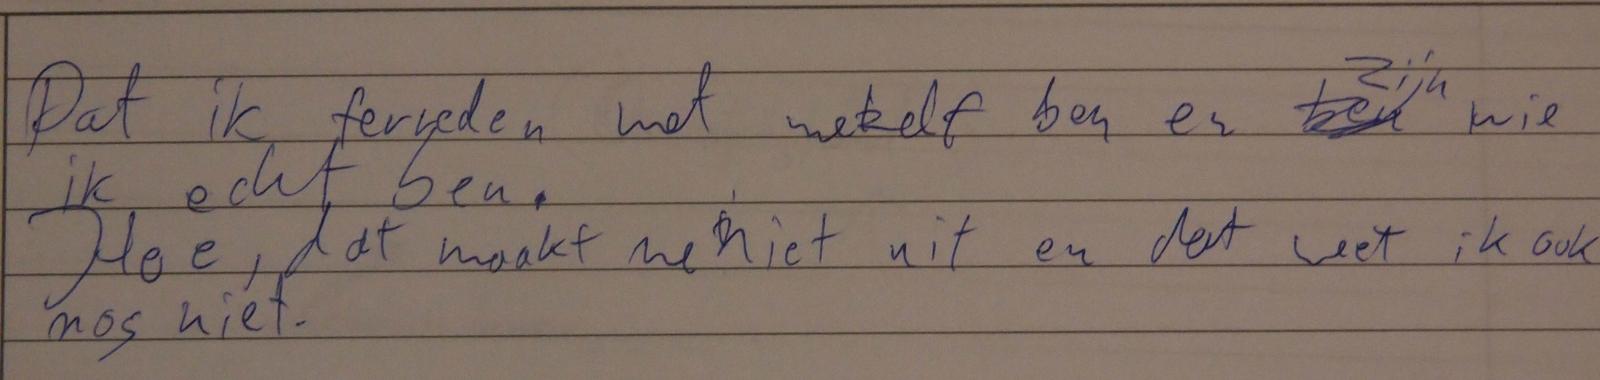 Dat ik ferreden met mezelf ben en zijn wie
ik echt ben.
Hoe, dat maakt me niet uit en dat weet ik ook
nog niet.